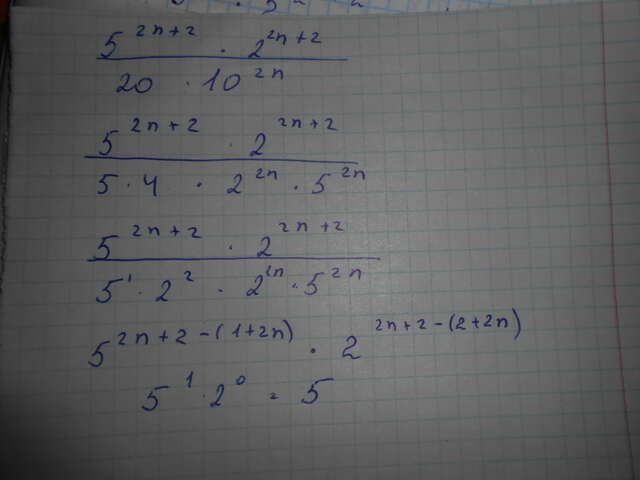 5^{2n+2} · 2^{2n+2}
20 · 10^{2n}
5^{2n+2} · 2^{2n+2}
5 · 4 · 2^{2n} · 5^{2n}
5^{2n+2} · 2^{2n+2}
5^1 · 2^2 · 2^{2n} · 5^{2n}
5^{2n+2-(1+2n)} · 2^{2n+2-(2+2n)}
5^1 · 2^0 = 5